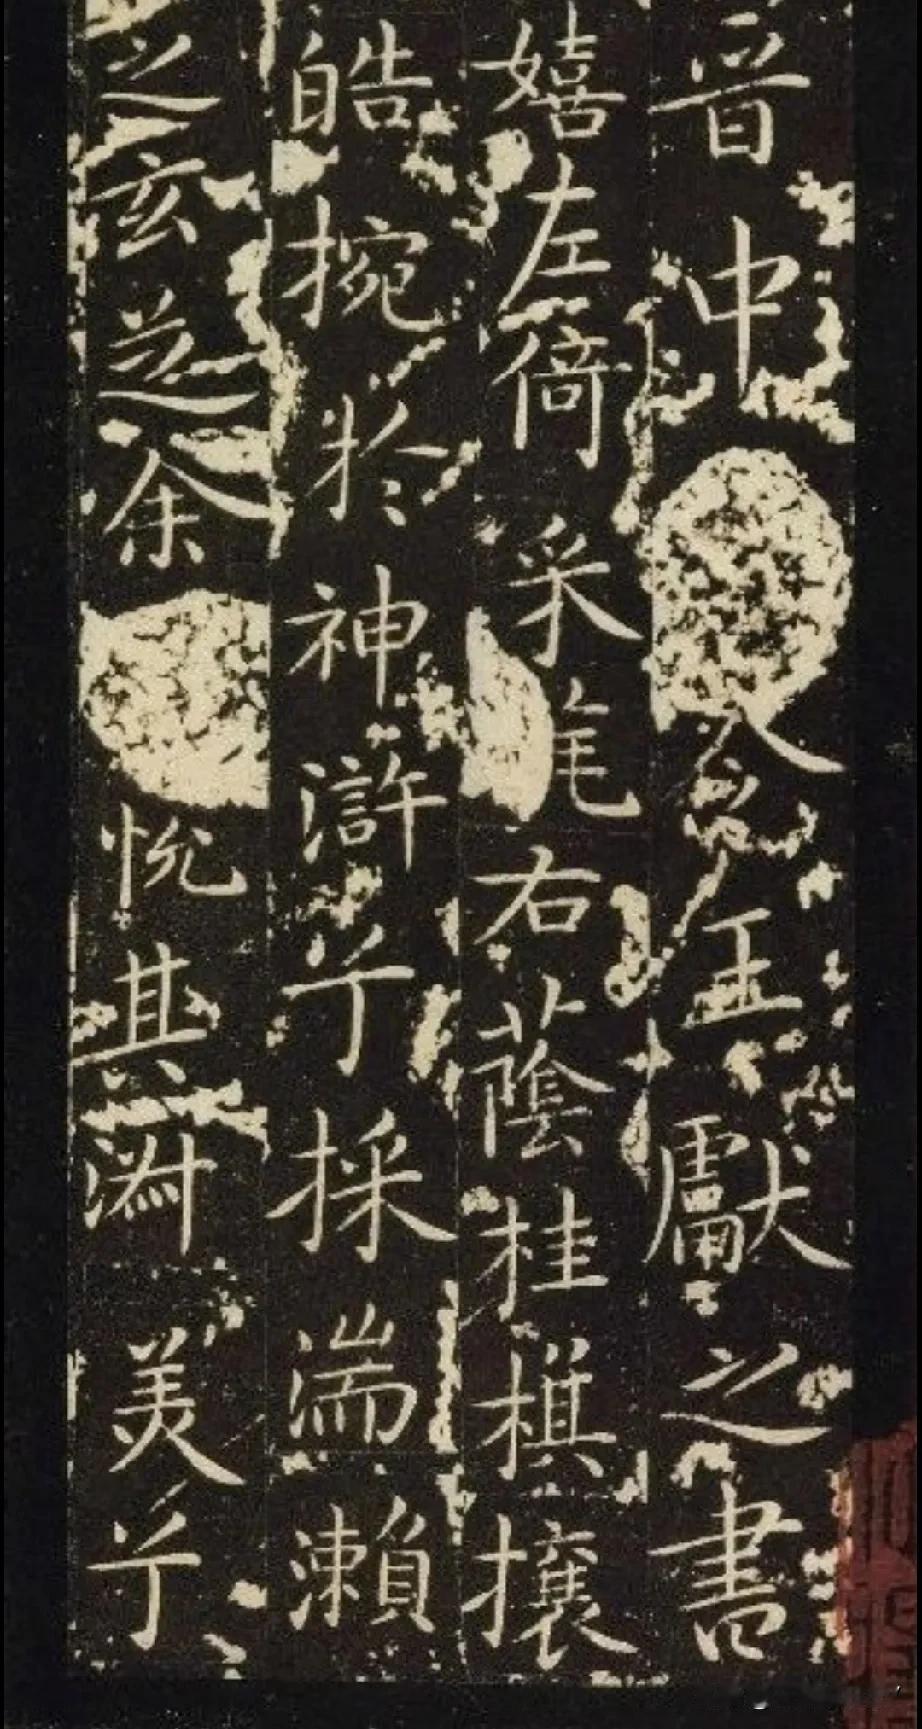 晉中令王獻之書
嬉左倚采旄右蔭桂棋攘
皓捥於神滸兮採湍瀬
之玄芝余悅其淑美兮